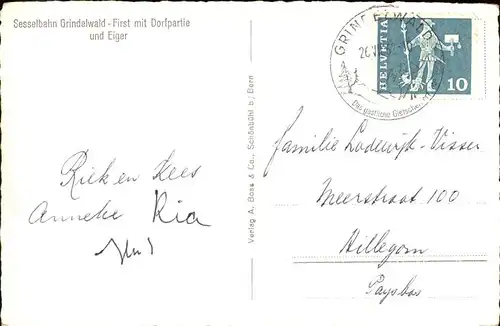 Sesselbahn Grindelwald - First mit Dorfpartie
und Eiger
GRINDELWALD
HELVETIA
10
Das gastliche Gletscherdorf
Verlag A. Boss & Co., Schönbühl b. Bern
Riek en Kees
Anneke Ria
Familie Lodewijk-Visser
Meerstraat 100
Hillegom
Paysbas